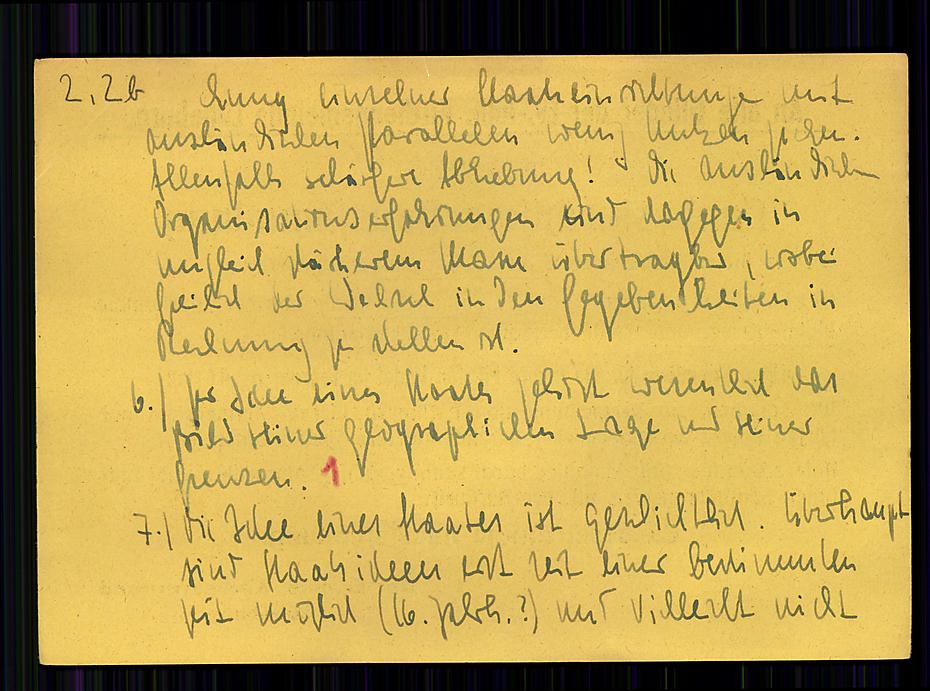 2,2b chung einzelner Staatseinrichtungen mit
ausländischen Parallelen wenig Nutzen geben.
Allenfalls schärfere Abhebung! Die ausländischen
Organisationserfahrungen sind dagegen in
ungleich stärkerem Masse übertragbar, wobei
freilich der Wechsel in den Gegebenheiten in
Rechnung zu stellen ist.
6.) Zur Idee eines Staates gehört wesentlich das
Bild seiner geographischen Lage und seiner
Grenzen. 1
7.) Die Idee eines Staates ist geschichtlich. Überhaupt
sind Staatsideen erst seit einer bestimmten
Zeit möglich (16. Jahrh.?) und vielleicht nicht